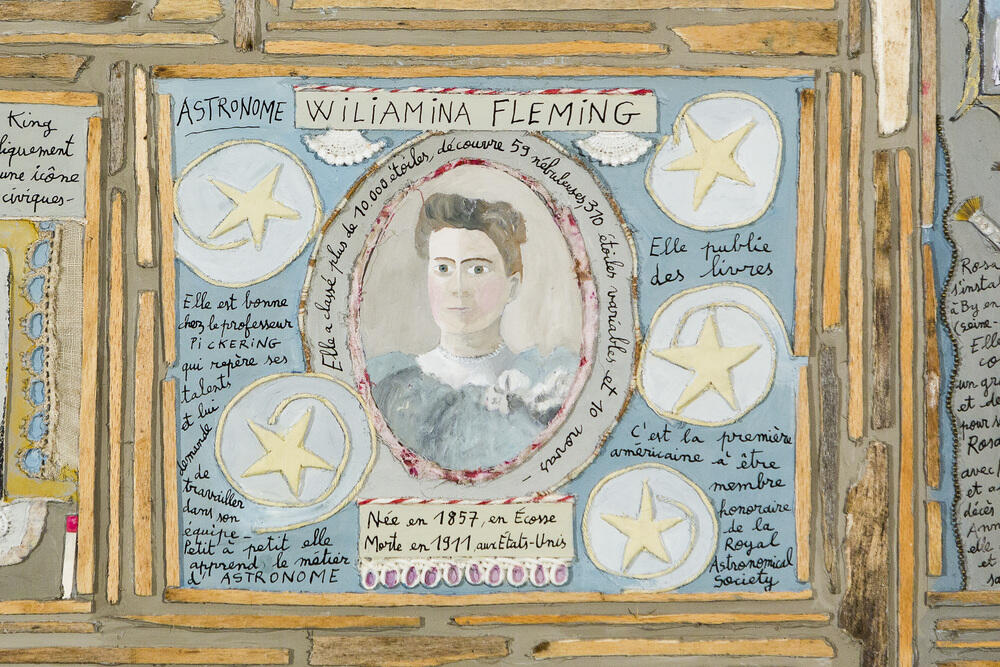 King
liquement
une icône
civiques-
ASTRONOME
WILIAMINA FLEMING
Elle a classé plus de 10.000 étoiles, découvre 59 nébuleuses, 310 étoiles variables et 10 novas-
Elle est bonne
chez le professeur
PICKERING
qui repère ses
talents
et lui
demande
de
travailler
dans son
équipe-
Petit à petit elle
apprend le métier
d'ASTRONOME
Née en 1857, en Écosse
Morte en 1911 aux États-Unis
Elle publie
des livres
C'est la première
américaine à être
membre
honoraire
de la
Royal
Astronomical
Society
Rosa
s'insta
à By en
(seine
Elle
co
un gr
et de
pour s
Rosa
avec
et a
décès
Ann
elle
et
so